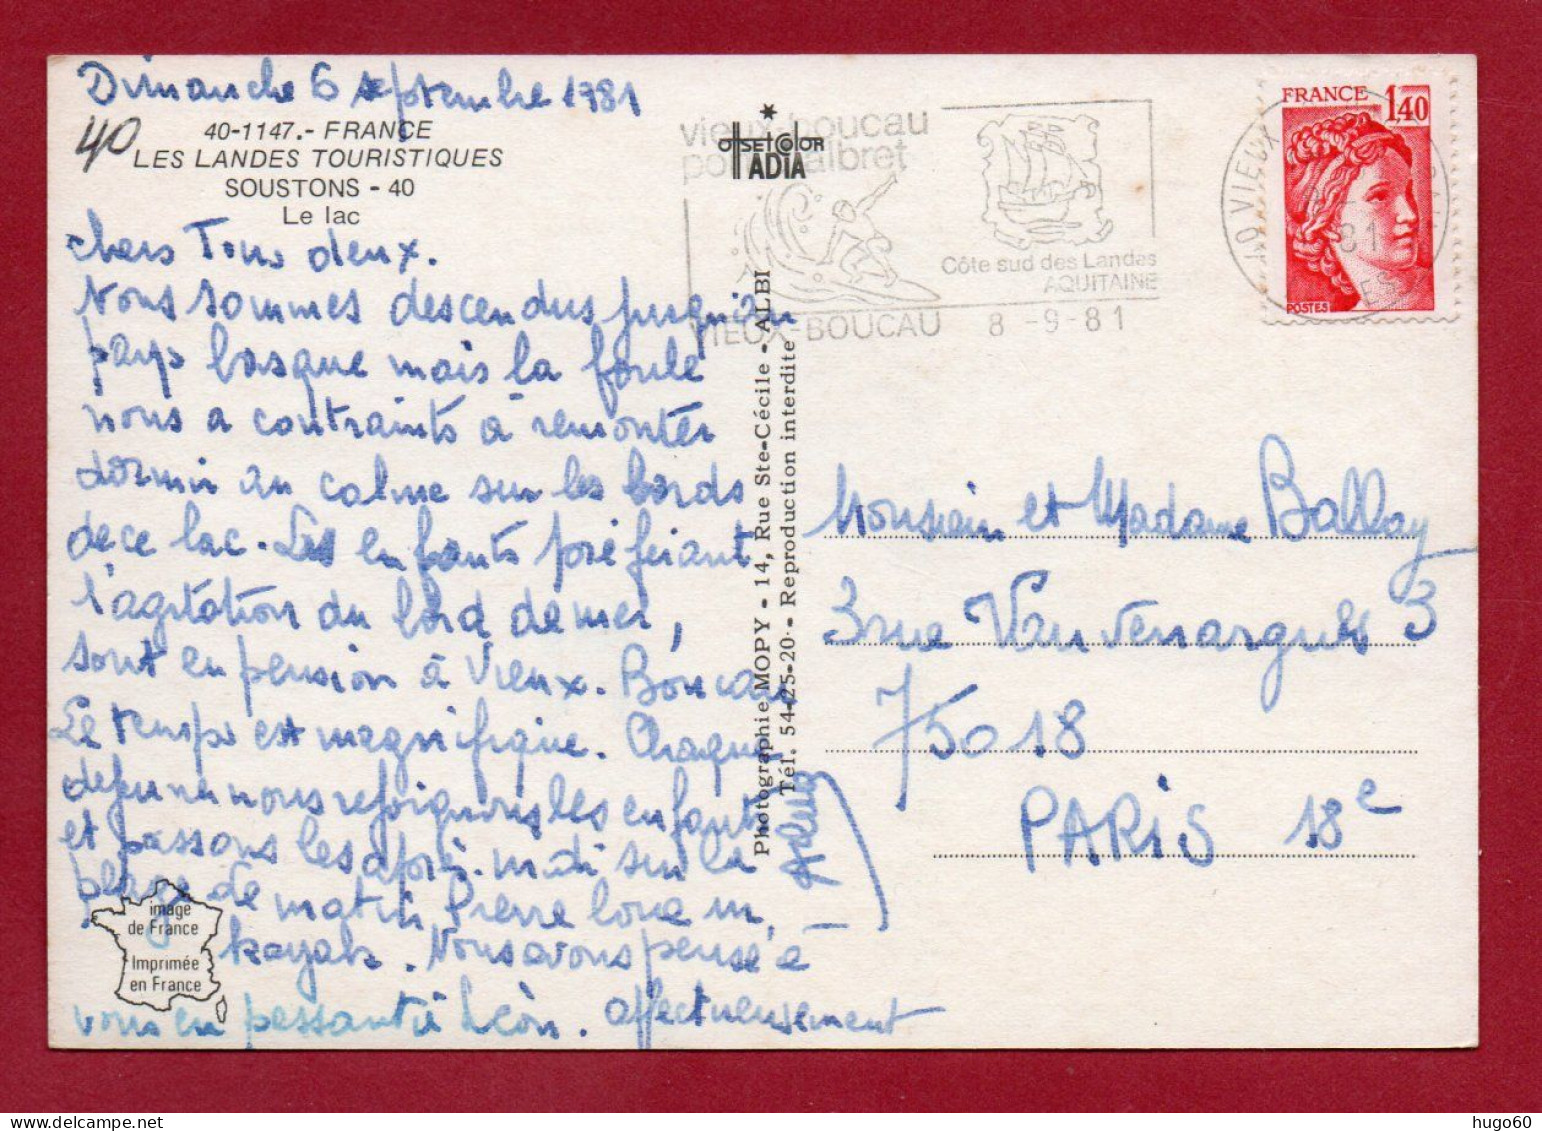 Dimanche 6 septembre 1981
40
40-1147.- FRANCE
LES LANDES TOURISTIQUES
SOUSTONS - 40
Le lac
chers Tous deux.
Nous sommes descendus jusqu'au
pays basque mais la foule
nous a contraints à remonter
dormir au calme sur les bords
de ce lac. Les enfants préférant
l'agitation du bord de mer,
sont en pension à Vieux-Boucau
Le temps est magnifique. Chaque
dejeuner nous rejoignons les enfants
et passons les après-midi sur la
plage. Le matin Pierre loue un
kayak. Nous avons pensé à
vous en passant à Léon. affectueusement
image
de France
Imprimée
en France
OffsetColor
ADIA
Photographie MOPY - 14, Rue Ste-Cécile - ALBI
Tél. 54-25-20 - Reproduction interdite
vieux-boucau
port d'albret
Côte sud des Landes
AQUITAINE
VIEUX-BOUCAU 8 -9-81
40 VIEUX
81
FRANCE 1,40
POSTES
Monsieur et Madame Ballay
3 rue Vauvenargues 3
75018
PARIS 18e
hugo60